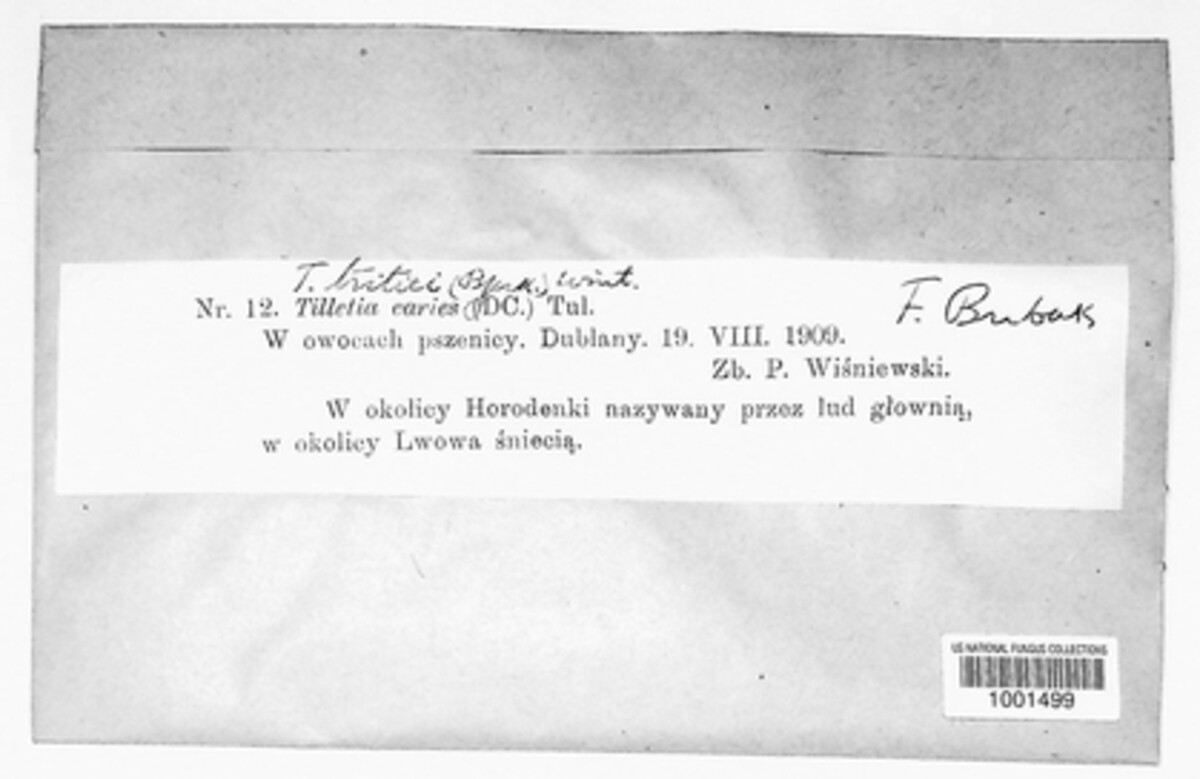 T. tritici (Bjerk.) Wint.
F. Bubak
Nr. 12. Tilletia caries (DC.) Tul.
W owocach pszenicy. Dublany. 19. VIII. 1909.
Zb. P. Wiśniewski.
W okolicy Horodenki nazywany przez lud głownią,
w okolicy Lwowa śniecią.
US NATIONAL FUNGUS COLLECTIONS
1001499